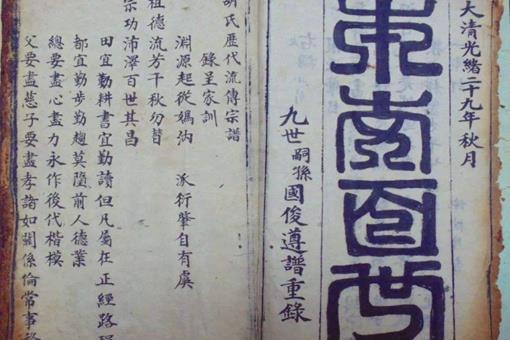 大清光緒二十九年秋月
本支百世
九世嗣孫國俊遵譜重錄
胡氏歷代流傳宗譜
錄呈家訓
淵源起從媯汭 派衍肇自有虞
祖德流芳千秋勿替
宗功沛澤百世其昌
田宜勤耕書宜勤讀但凡屬在正經路
都宜勤步勤趨莫墮前人德業
總要盡心盡力永作後代楷模
父要盡慈子要盡孝諸如關係倫常事